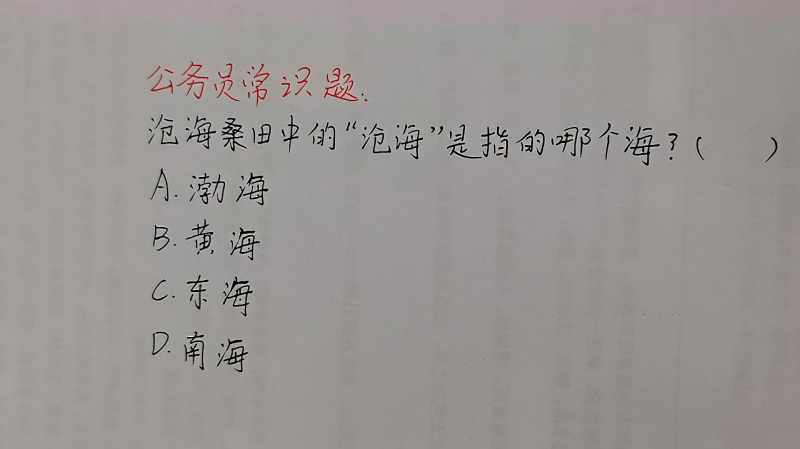 公务员常识题:
沧海桑田中的“沧海”是指的哪个海?( )
A.渤海
B.黄海
C.东海
D.南海